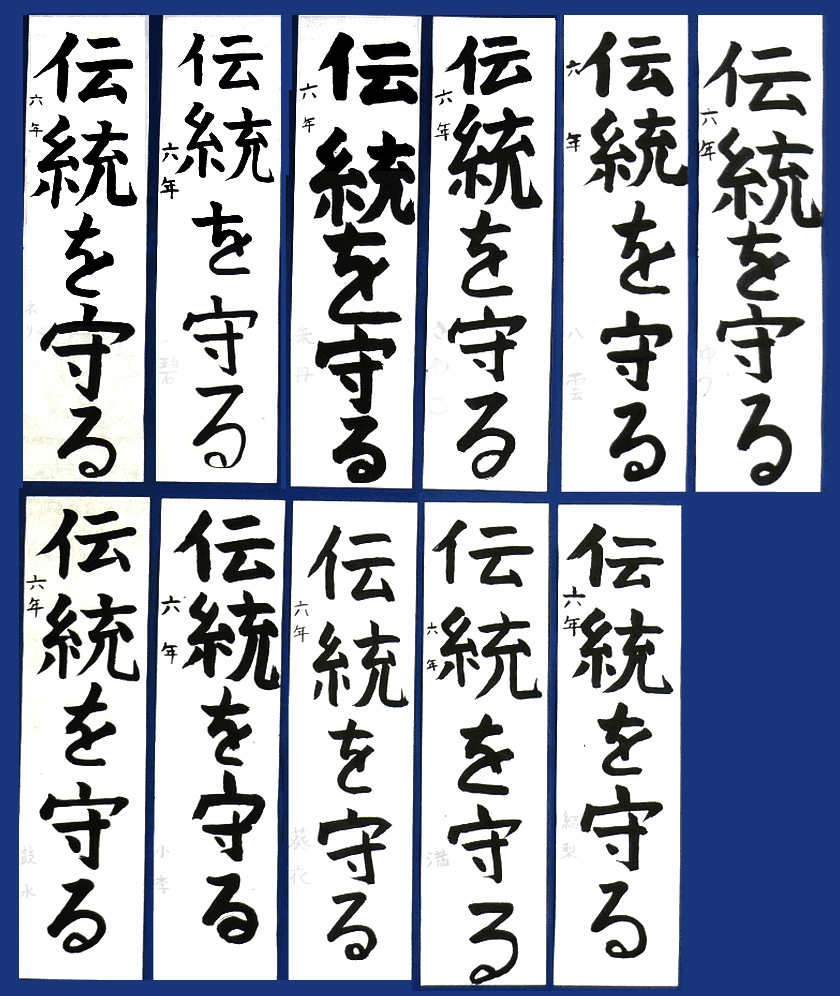 伝統を守る
六年
伝統を守る
六年
碧
伝統を守る
六年
朱丹
伝統を守る
六年
伝統を守る
六年
八雲
伝統を守る
六年
ゆう
伝統を守る
六年
鼓水
伝統を守る
六年
小李
伝統を守る
六年
葵衣
伝統を守る
六年
満
伝統を守る
六年
結梨